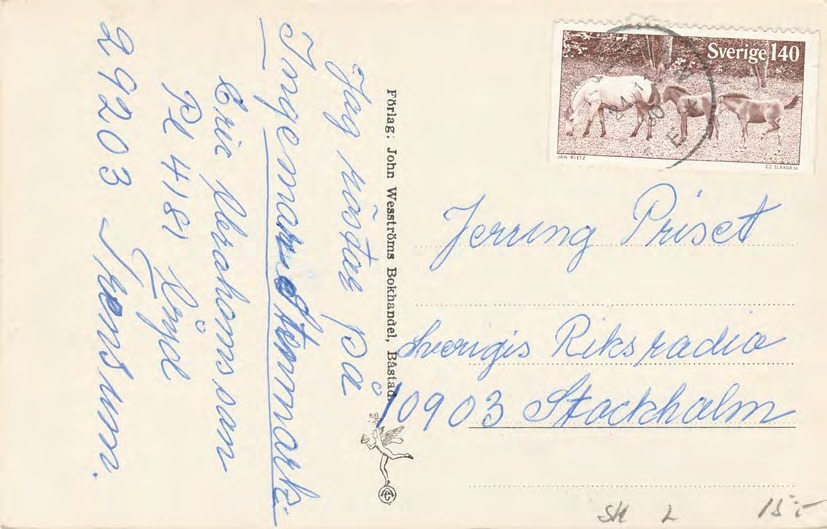 Jag röstar på
Ingemar Stenmark.
Eric Abrahamsson
Pl 4181 Röyd
29203 
Förlag: John Wesströms Bokhandel, Båstad.
Sverige 140
JAN RIETZ
CZ. SLANIA SC.
Jerring Priset
Sverigis Riksradio
10903 Stockholm
SH L 15:-